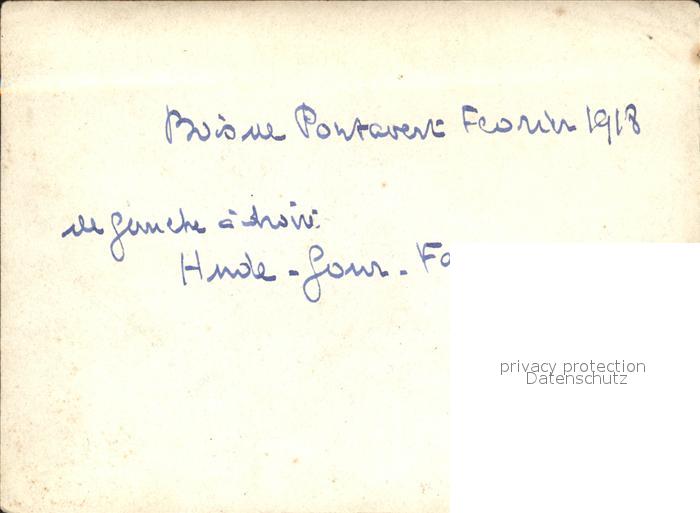 Bois de Pontavert Fevrier 1918
de gauche à droite
Hude - Gour - Fo
privacy protection
Datenschutz